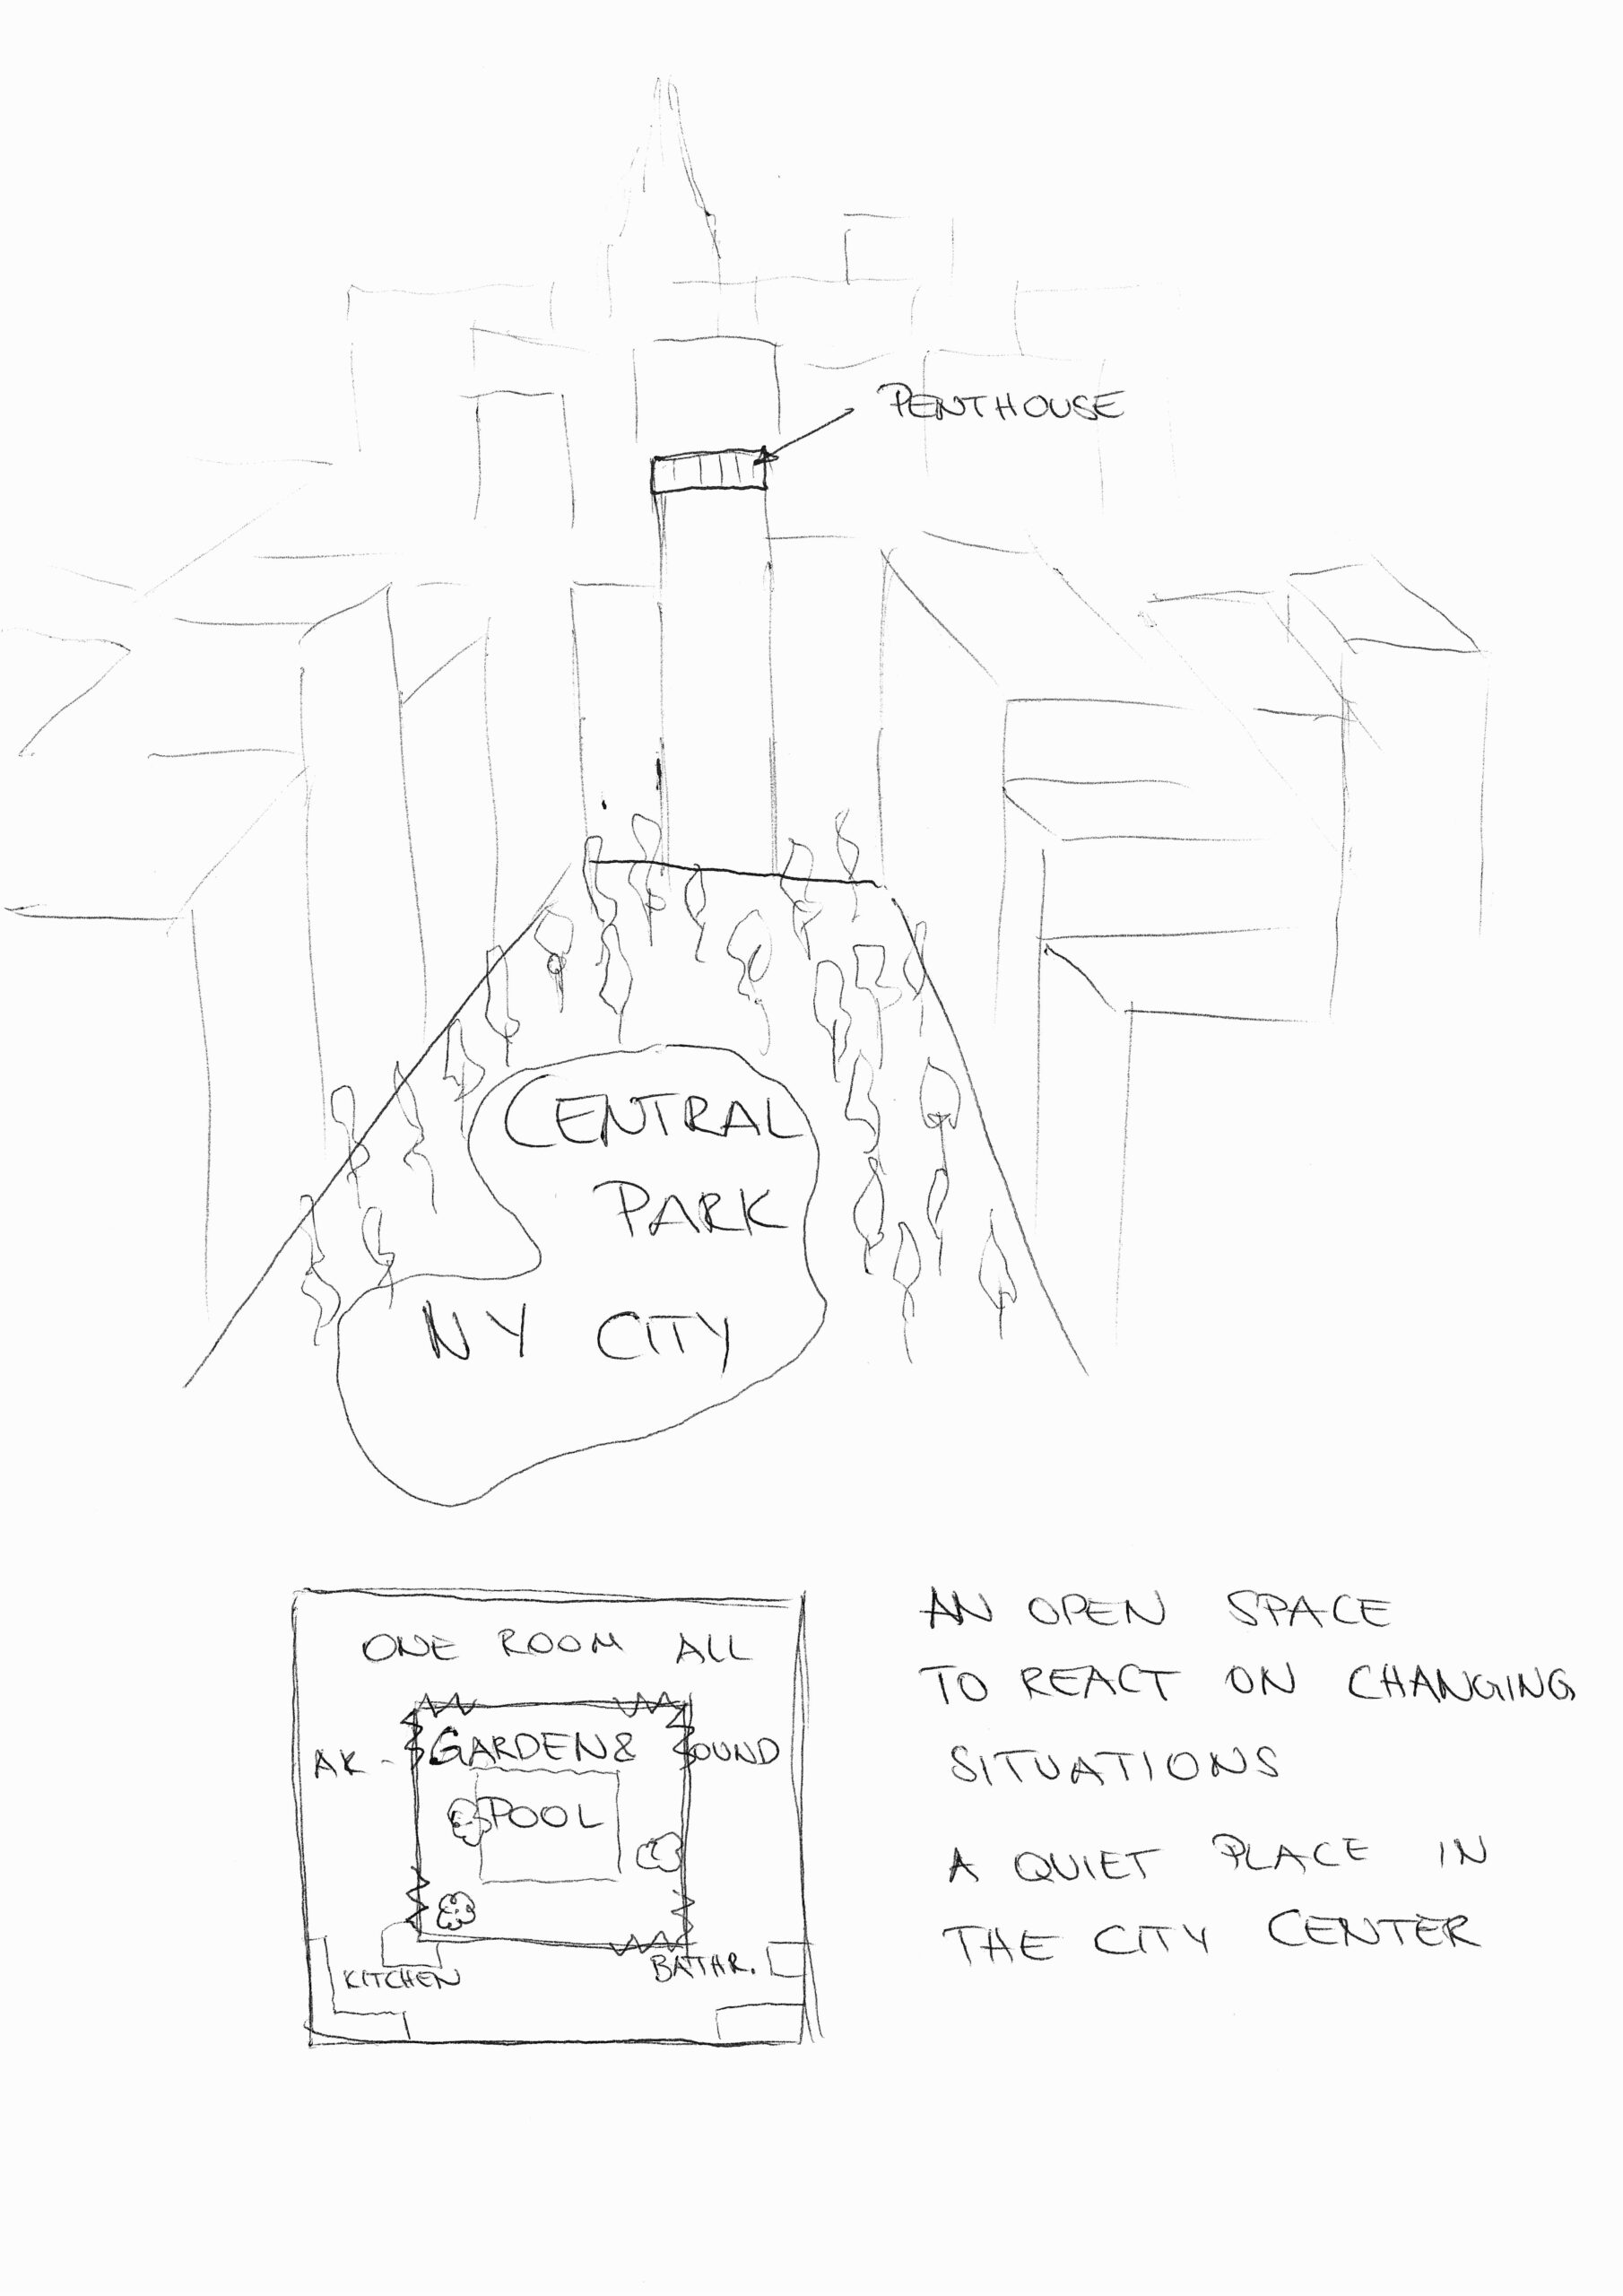 PENTHOUSE
CENTRAL
PARK
NY CITY
ONE ROOM ALL
AR- GARDEN& OUND
POOL
KITCHEN
BATHR.
AN OPEN SPACE
TO REACT ON CHANGING
SITUATIONS
A QUIET PLACE IN
THE CITY CENTER